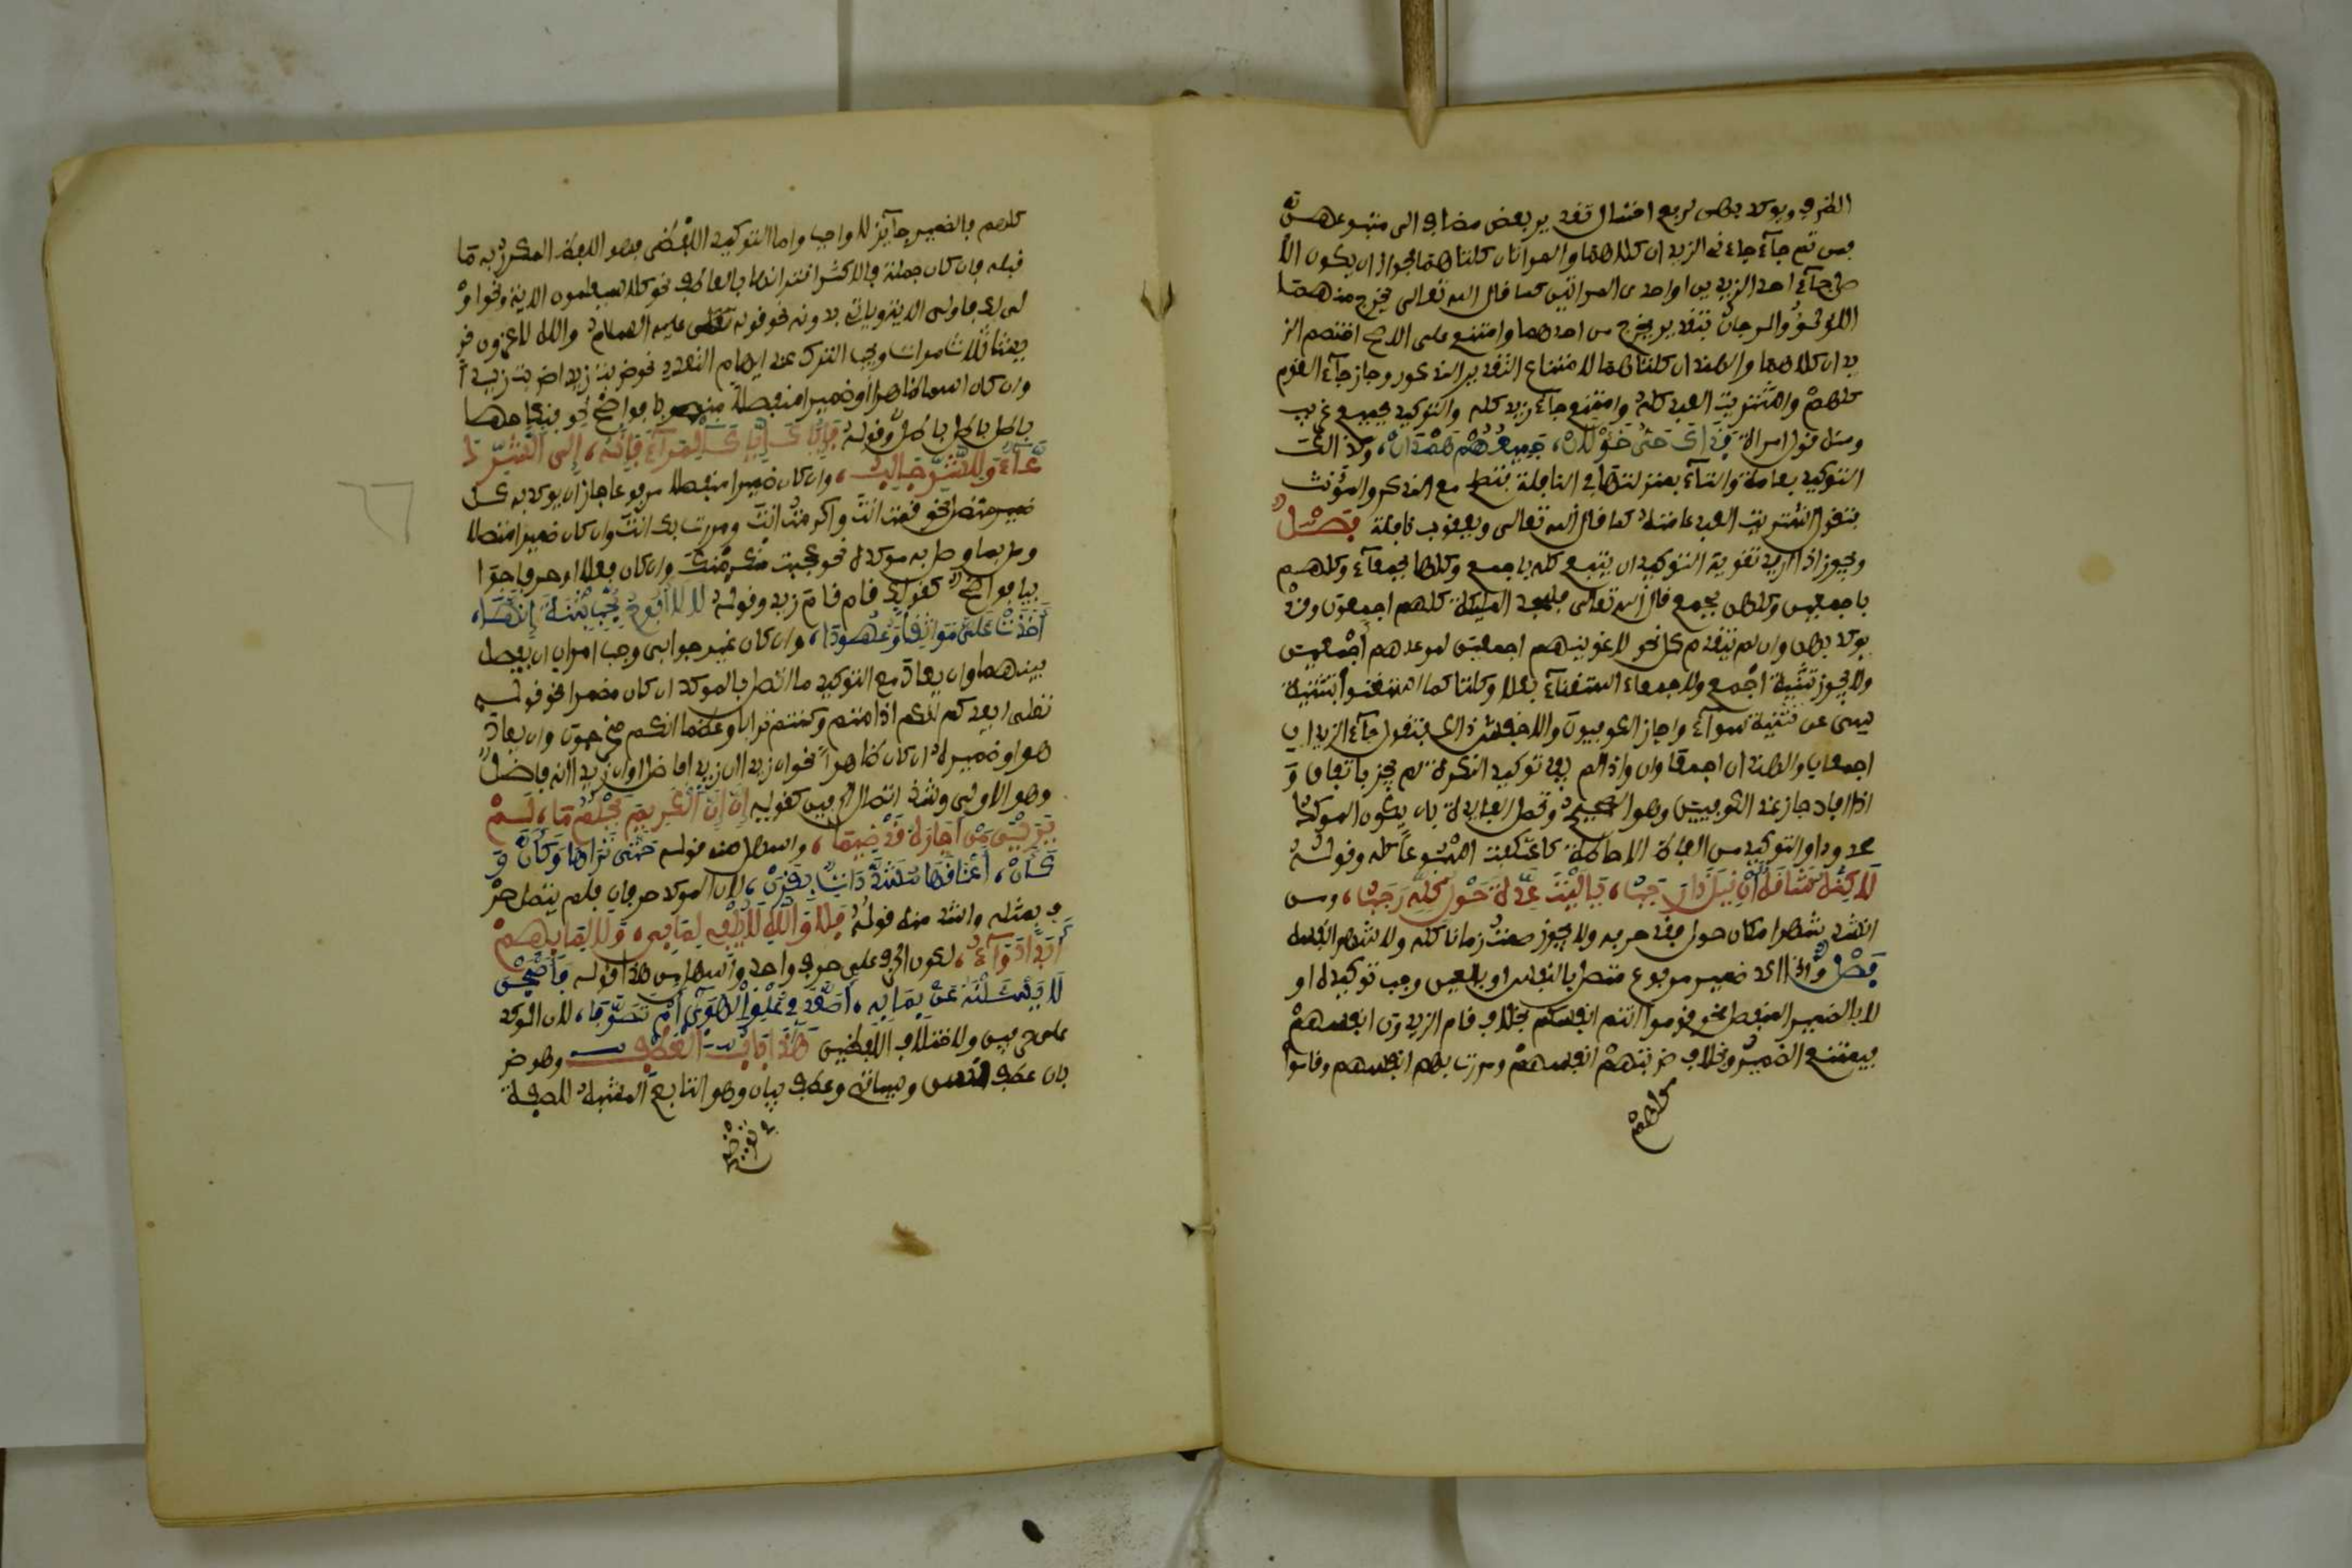 الطرفي ويوكد بهن لرفع احتمال تقدير بعض مضاف الى متبوعهن
فمن ثم جاء جاءني الزيدان كلاهما والمراتان كلتاهما لجواز ان يكون الا
صل جاء احد الزيدين او احدى المراتين كما قال الله تعالى يخرج منهما
اللؤلؤ والمرجان بتقدير يخرج من احدهما وامتنع على الاصح اختصم الز
يدان كلاهما والهندان كلتاهما لامتناع التقدير المذكور وجاز جاء القوم
كلهم واشتريت العبد كله وامتنع جاء زيد كله والتوكيد بجميع غريب
ومنه قول امراة فداك حي خولان، جميعهم همدان، وكذلك
التوكيد بعامة والتاء بمنزلتها في النافلة فتصلح مع المذكر والمؤنث
فتقول اشتريت العبد عامته كما قال الله تعالى ويعقوب نافلة فصل
ويجوز اذا اريد تقوية التوكيد ان يتبع كله باجمع وكلها بجمعاء وكلهم
باجمعين وكلهن بجمع قال الله تعالى فسجد الملئكة كلهم اجمعون وقد
يوكد بهن وان لم يتقدم كل نحو لاغوينهم اجمعين لموعدهم اجمعين
ولا يجوز تثنية اجمع ولا جمعاء استغناء بكلا وكلتا كما استغنوا بتثنية
سي عن تثنية سواء واجاز الكوفيون والاخفش ذلك فتقول جاء الزيدان
اجمعان والهندان جمعاوان واذا لم يفد توكيد النكرة لم يجز باتفاق و
اذا افاد جاز عند الكوفيين وهو الصحيح وتحصل الفايدة بان يكون الموكد
محدودا والتوكيد من الفاظ الاحاطة كاعتكفت اسبوعا كله وقوله
لاكنه شاقه ان قيل ذا رجب، يا ليت عدة حول كله رجب، ومن
انشد شهرا مكان حول فقد حرفه ولا يجوز صمت زمانا كله ولا شهرا نفسه
فصل واذا اكد ضمير مرفوع متصل بالنفس او بالعين وجب توكيده او
لا بالضمير المنفصل نحو قوموا انتم انفسكم بخلاف قام الزيدون انفسهم
فيمتنع الضمير وبخلاف ضربتهم انفسهم ومررت بهم انفسهم وقاموا
كلهم
كلهم فالضمير جايز لا واجب واما التوكيد اللفظي فهو اللفظ المكرر به ما
قبله فان كان جملة فالاكثر اقترانها بالعاطف نحو كلا سيعلمون الاية ونحو او
لى لك فاولى الاية وياتي بدونه نحو قوله عليه السلام والله لاغزون قر
يشا ثلاث مرات ويجب الترك عند ايهام التعدد نحو ضربت زيدا ضربت زيدا
وان كان اسما ظاهرا او ضميرا منفصلا منصوبا فواضح نحو فنكاحها
باطل باطل باطل وقوله فاياك اياك المراء فانه، الى الشر د
عاء وللشر جالب، وان كان ضميرا منفصلا مرفوعا جاز ان يوكد به كل
ضمير متصل نحو قمت انت واكرمتك انت ومررت بك انت وان كان ضميرا متصلا
وصل بما وصل به موكده نحو عجبت منك منك وان كان فعلا او حرفا جوا
بيا فواضح كقولك قام قام زيد وقوله لا لا ابوح بحب بثنة انها،
اخذت علي مواثقا وعهودا، وان كان غير جوابي وجب امران ان يفصل
بينهما وان يعاد مع التوكيد ما اتصل بالموكد ان كان مضمرا نحو قوله
تعلى ايعدكم انكم اذا متم وكنتم ترابا وعظما انكم مخرجون وان يعاد
هو او ضميره ان كان ظاهرا نحو ان زيدا ان زيدا فاضل او ان زيدا انه فاضل
وهو الاولى وشذ اتصال الحرفين كقوله ان ان الكريم يحلم ما، لم
يرين من اجاره قد ضيما، واسهل منه قوله حتى تراها وكان و
كان، اعناقها مشددات بقرن، لان الموكد حرفان فلم يتصل حر
ف بمثله واشذ منه قوله فلا والله لا يلفى لما بي، ولا للما بهم
ابدا دواء، لكون الحرف على حرف واحد واسهل من هذا قوله فاصبحن
لا يسئلنه عن بما به، اصعد في علو الهوى ام تصوبا، لان الموكد
على حرفين ولاختلاف اللفظين هذا باب العطف وهو ضر
بان عطف نسق وسياتي وعطف بيان وهو التابع المشبه للصفة